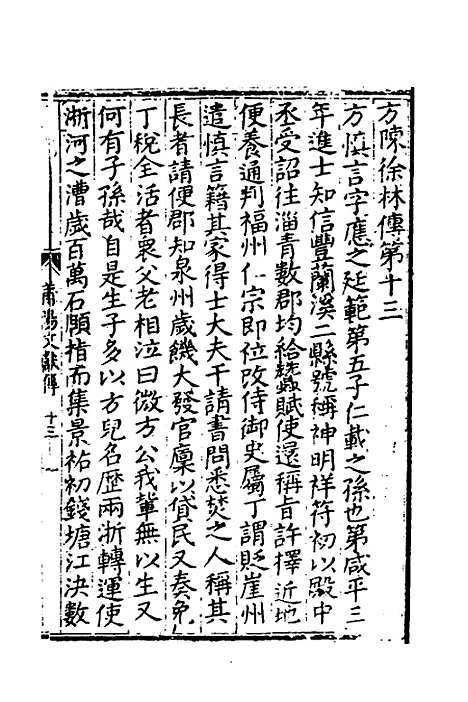 方陳徐林傳第十三
方慎言字應之廷範第五子仁載之孫也第咸平三
年進士知信豐蘭溪二縣號稱神明祥符初以殿中
丞受詔往淄青數郡均給蠶賦使還稱旨許擇近地
便養通判福州仁宗即位改侍御史屬丁謂貶崖州
遣慎言籍其家得士大夫干請書問悉焚之人稱其
長者請便郡知泉州歲饑大發官廩以貸民又奏免
丁稅全活者衆父老相泣曰微方公我輩無以生又
何有子孫哉自是生子多以方兒名歷兩浙轉運使
淅河之漕歲百萬石頤指而集景祐初錢塘江決數
莆陽文獻傳 十三